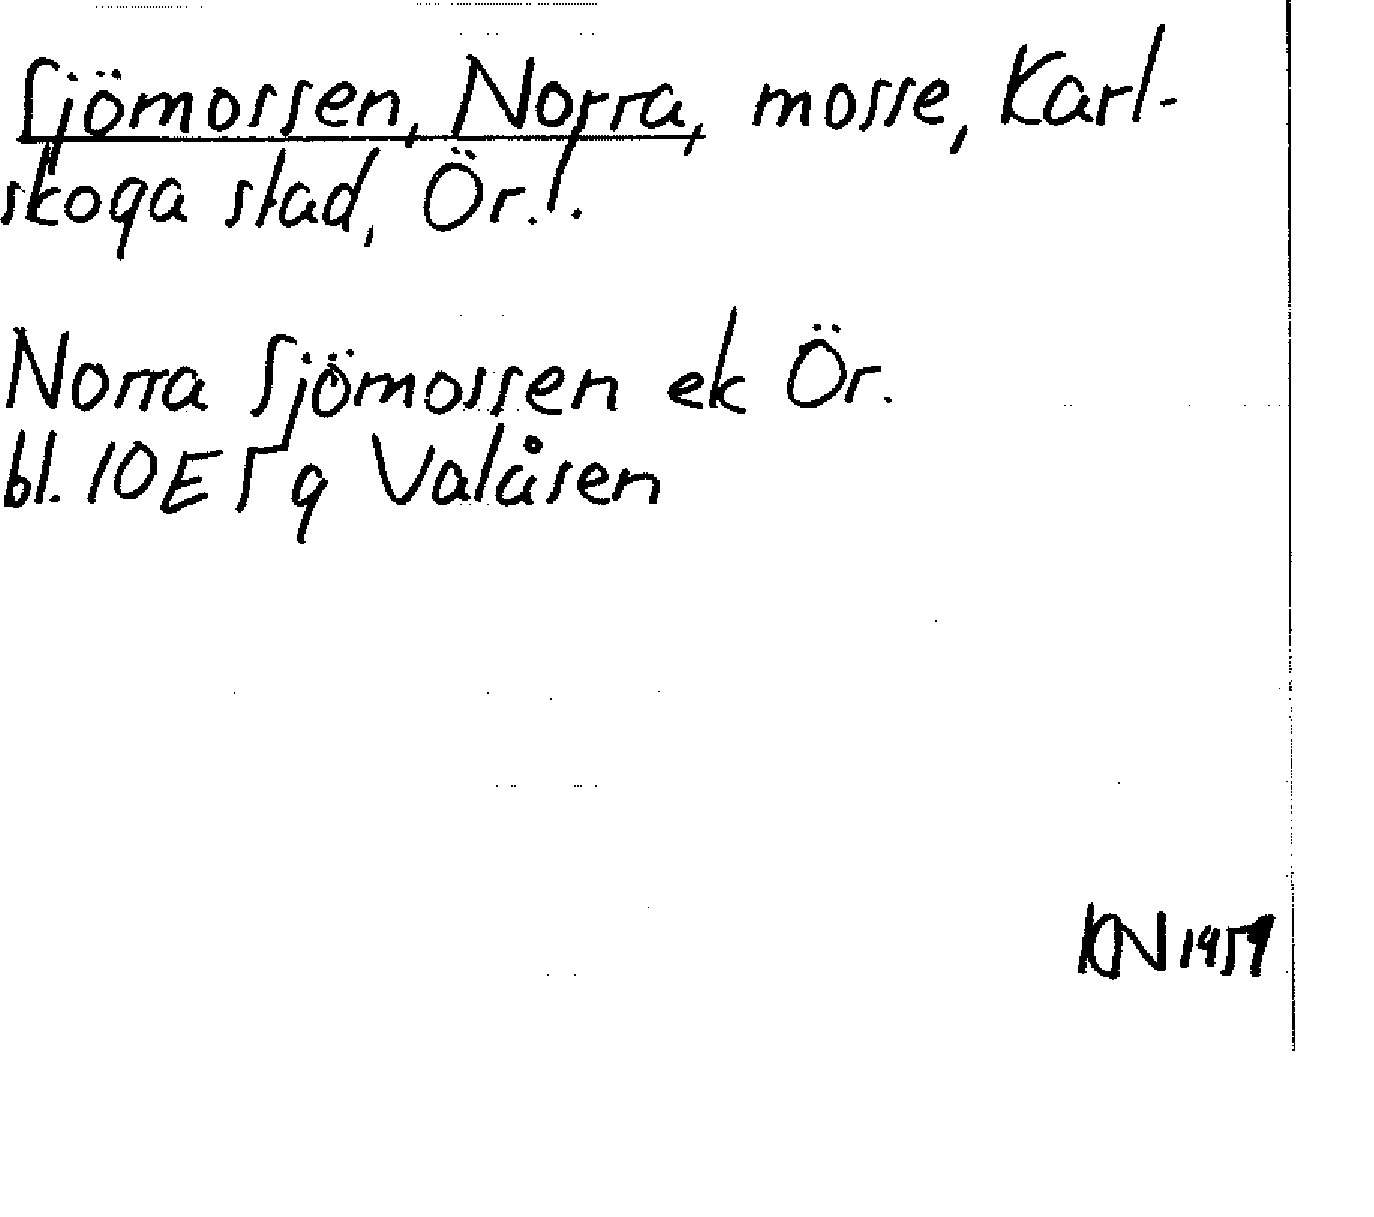 Sjömossen, Norra, mosse, Karl-
skoga stad, Ör. l.
Norra Sjömossen ek Ör.
bl. 10E5g Valåsen
KN 1959